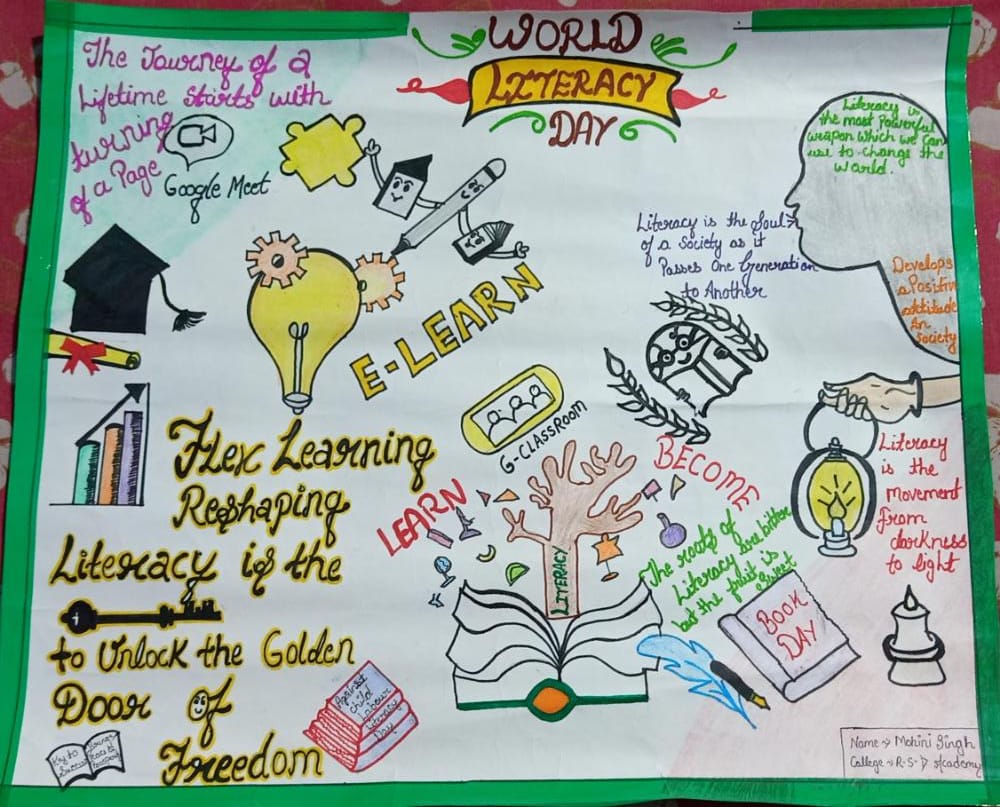 WORLD
LITERACY
DAY
The Journey of a
Lifetime Starts with
turning
of a Page
Google Meet
E-LEARN
Literacy is
the most Powerful
weapon which we can
use to change the
world.
Literacy is the Soul
of a Society as it
Passes One Generation
to Another
Develops
a Positive
attitude
In
Society
G-CLASSROOM
Flex Learning
Reshaping
Literacy is the
to Unlock the Golden
Door of
Freedom
LEARN
BECOME
LITERACY
The roots of
Literacy are bitter
but the fruit is
sweet
BOOK
DAY
Literacy
is the
movement
From
darkness
to light
Against
child
Labour
Literacy
Day
Key to
Success
Name → Mohini Singh
College → R-S-D Academy